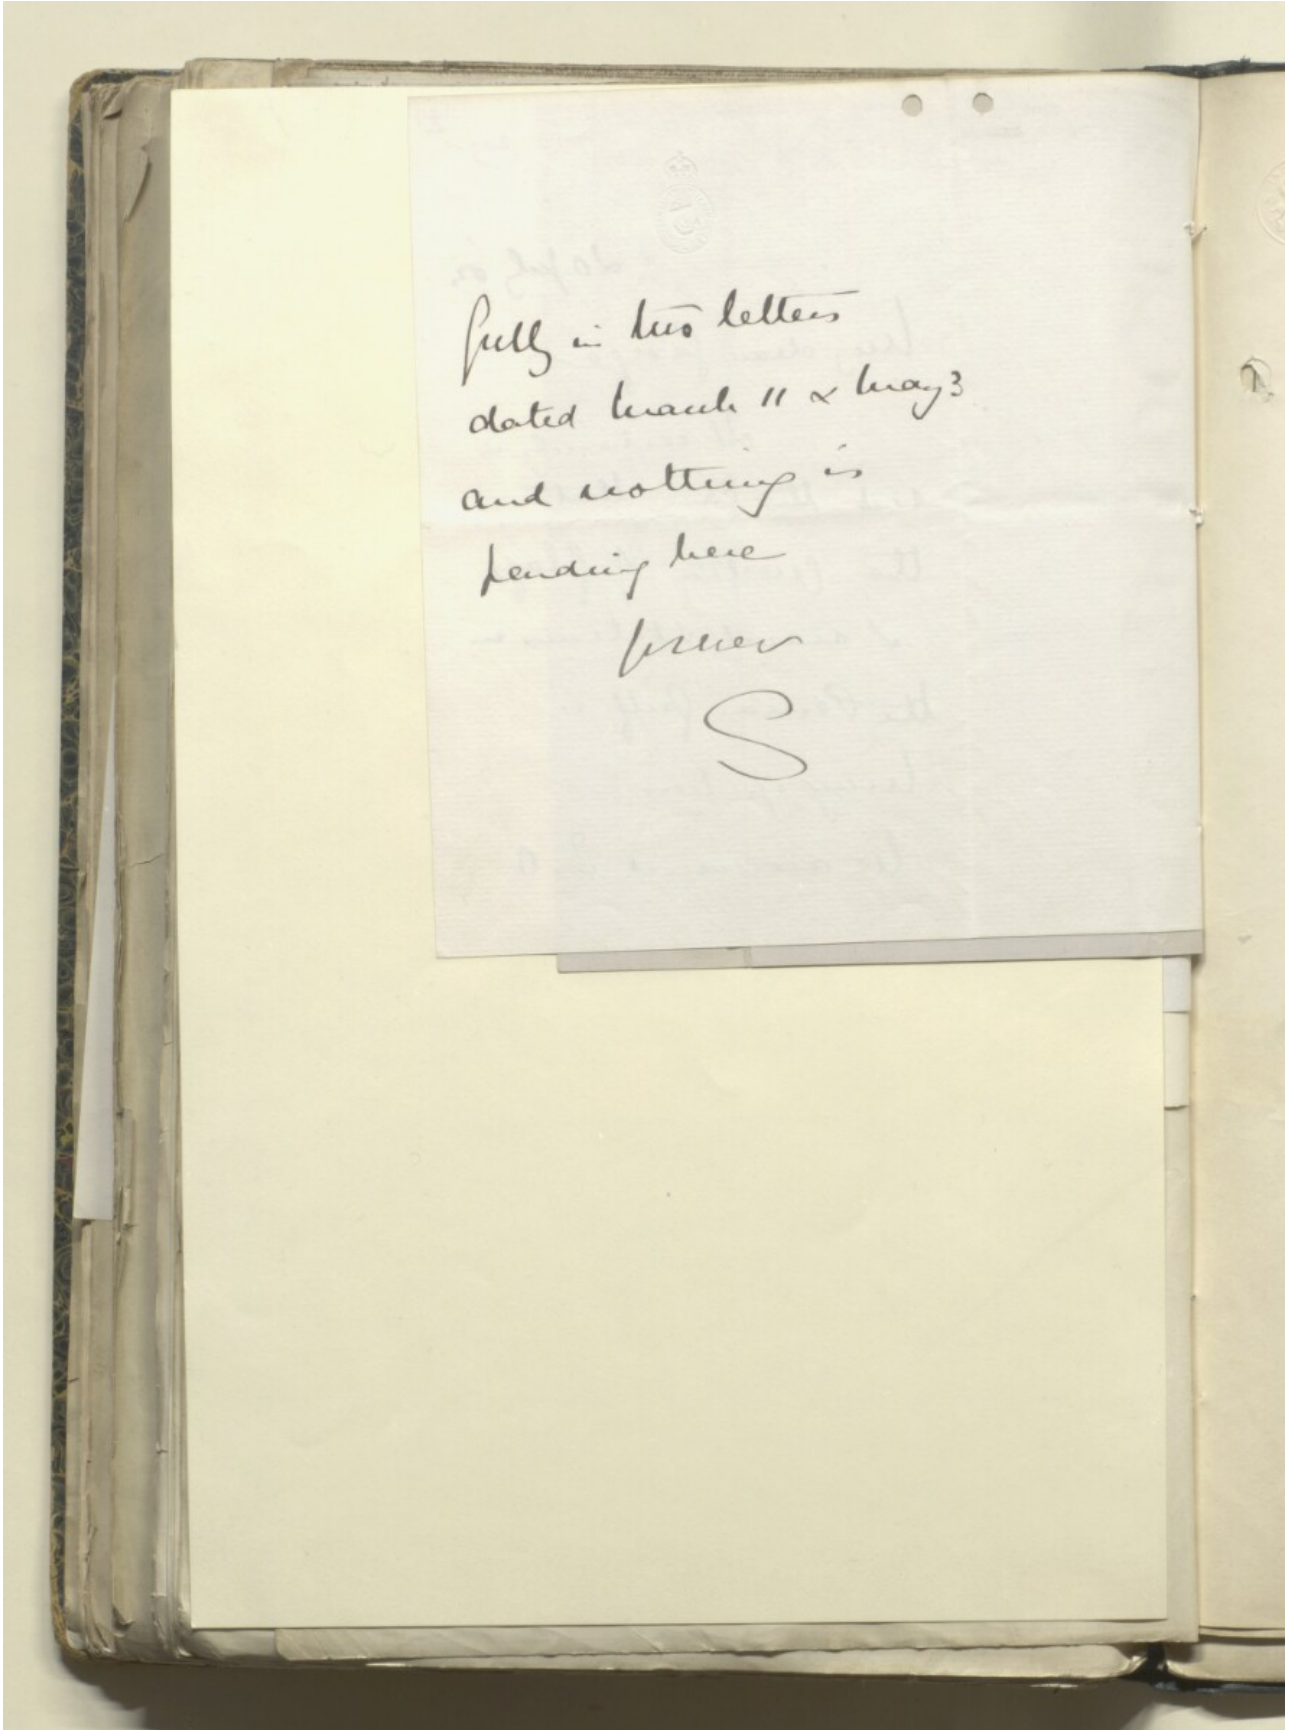 fully in two letters
dated March 11 & May 3
and nothing is
pending here
S